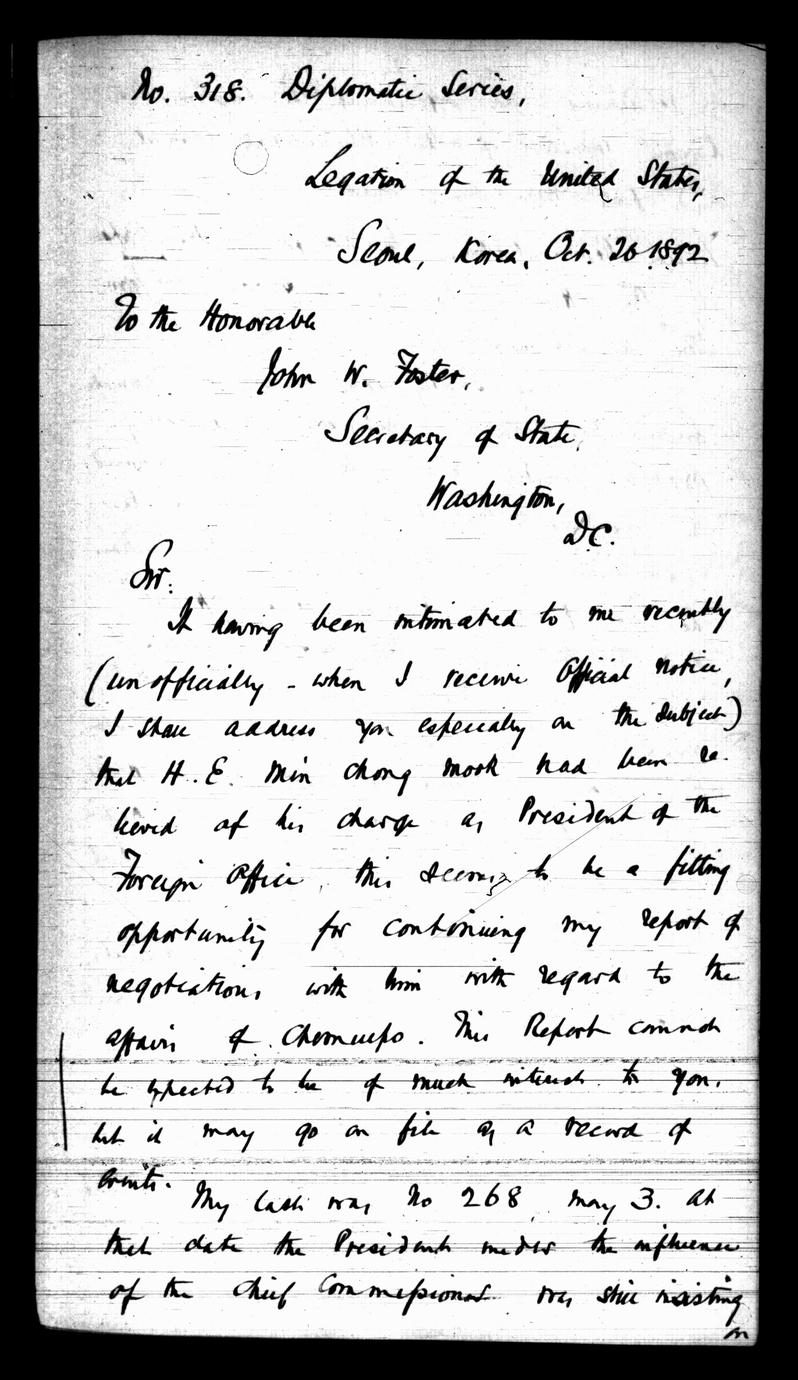 No. 318. Diplomatic Series,
Legation of the United States,
Seoul, Korea, Oct. 26 1892
To the Honorable
John W. Foster,
Secretary of State,
Washington,
D.C.
Sir:
It having been intimated to me recently
(unofficially - when I receive official notice,
I shall address you especially on the subject)
that H. E. Min Chong Mook had been re-
lieved of his charge as President of the
Foreign Office, this seems to be a fitting
opportunity for continuing my report of
negotiations with him with regard to the
affairs of Chemulpo. This Report cannot
be expected to be of much interest to you,
but it may go on file as a record of
events.
My last was No 268, May 3. At
that date the President under the influence
of the Chief Commissioner was still insisting
on